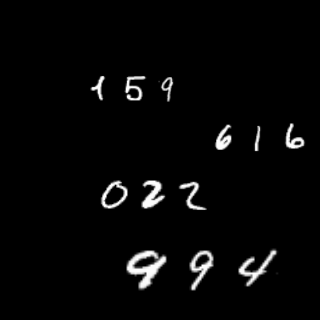 1 5 9
6 1 6
0 2 2
9 9 4